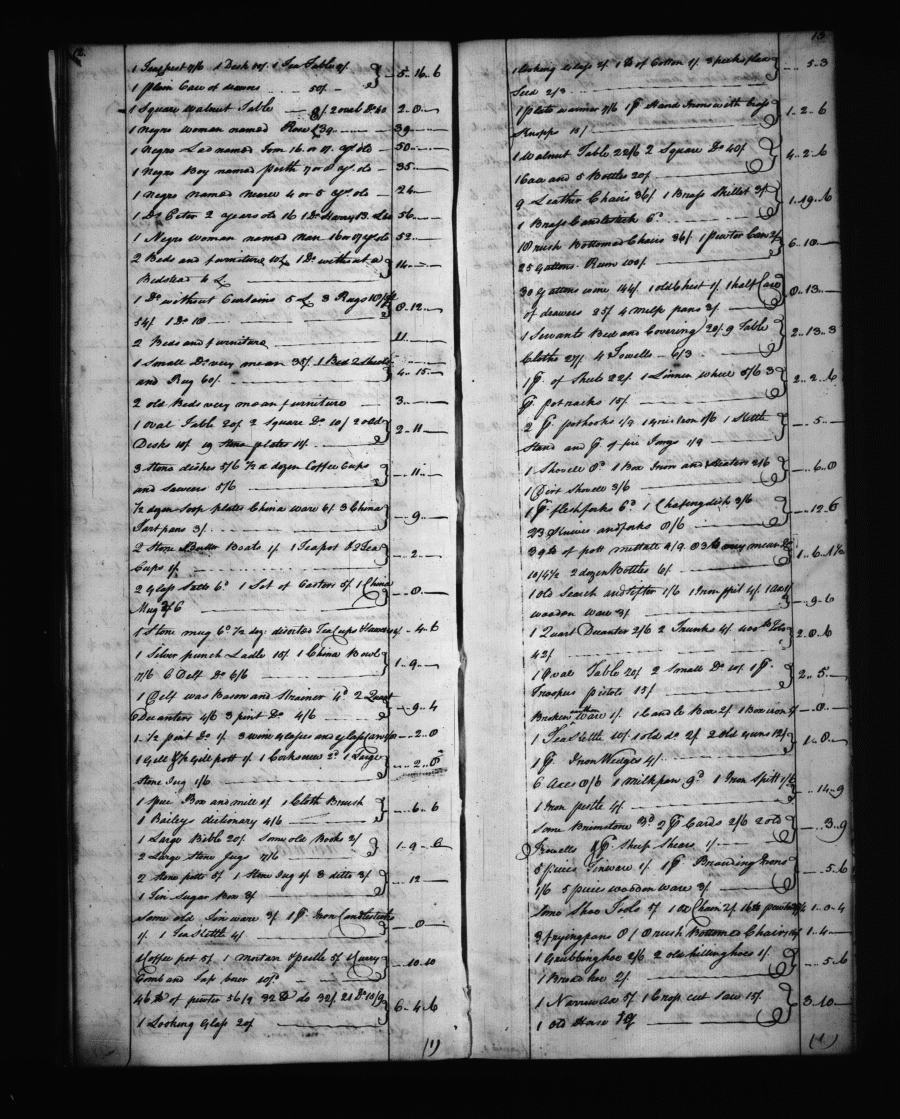 12.
1 Teachest 7/6 1 Desk 10/. 1 Tea Table 9/. 5..16..6
1 plain Case of drawers 50/-
1 Square walnut Table 2 oval Do 40 2..0..
1 negro woman named Rose £39 39..
1 Negro Lad named Tom 16 or 17 yrs old 50..
1 Negro Boy named perth 7 or 8 yrs old 35..
1 negro named 4 or 5 yrs old 24
1 Do Peter 2 years old 16 1 Do Harry 13. 56..
1 Negro woman named Nan 16 or 17 yrs old 52..
2 Beds and furniture 10£ 1 Do without a 14..
Bedstead 4 £
1 Do without Curtains 5 £ 3 Rugs 8..12..
54/. 1 Do 10
2 Beds and furniture 11..
1 Small Do very mean 35/. 1 Bed 2 Sheets
and Rug 60/. 4..15..
2 old Beds very mean furniture 3..
1 oval Table 20/. 2 Square Do 10/. 2 old 2..11
Desks 10/. 19 Stone plates 11/.
3 Stone dishes 5/6 1/2 a dozen Coffee Cups 11..
and Sawcers 5/6
1/2 dozen Soop plates China ware 6/. 3 China 9..
Tart pans 3/.
2 Stone Butter Boats 1/. 1 Teapot & 2 Tea 2..
Cups 1/.
2 Glass Salts 6d 1 Set of Castors 5/. 1 China 8..
Mug 2/6
1 Stone mug 6d 1/2 doz: Tea Cups & Sawcers 4/. 4..6
1 Silver punch Ladle 15/. 1 China Bowl 1..9..
7/6 6 Delf Do 6/6
1 Delf was Bason and Strainer 4d 2 Quart 9..4
Decanters 4/6 3 pint Do 4/6
1 1/2 pint Do 1/. 3 wine glasses and glass 2..0
1 Gill & 1/2 Gill pott 1/. 1 Corkscrew 2d 1 Large 2..8
Stone Jug 1/6
1 Spice Box and mill 1/. 1 Cloth Brush 6..6
1 Baileys dictionary 4/6
1 Large Bible 20/. Some old Books 2/ 1..9..6
2 Large Stone Jugs 7/6
2 Stone potts 5/. 1 Stone Jug 1/. 3 ditto 3/. 12
1 Tin Sugar Box 3/.
Some old Tin ware 3/. 1 pr. Iron Candlesticks 8
1/. 1 Tea Kettle 4/.
1 Coffee pot 5/. 1 mortar & pestle 5/. 1 Curry 10..10
Comb and 10d
46 lb of pewter 36/9 32 lb do 32/. 21 Do 15/9 6..4..6
1 Looking Glass 20/.
(1)
13
1 looking Glass 2/. 1 lb of Cotton 1/. 3 pecks flax 5..3
Seed 2/3
1 plate warmer 7/6 1 pr. Hand Irons with brass 1..2..6
Knopps 15/
1 Walnut Table 22/6 2 Square Do 40/. 4..2..6
1 Case and 5 Bottles 20/.
9 Leather Chairs 36/. 1 Brass Skillet 3/. 1..19..6
1 Brass Candlestick 6d
18 rush Bottomed Chairs 36/. 1 pewter Can 2/. 6..18
25 Gallons Rum 100/.
30 Gallons wine 144/. 1 old Chest 1/. 1 half Case 8..13
of drawers 25/. 4 milk pans 3/.
1 Servants Bed and Covering 20/. 9 Table 2..13..3
Cloths 27/. 4 Towells 6/3
1 pr. of Sheets 22/. 1 Linnen wheel 5/6 3 2..2..6
pr. pot racks 15/.
2 pr. pothooks 1/9 1 gridiron 1/6 1 Kettle 5
Stand and pr of fire Tongs 1/9
1 Shovell 8d 1 Box Iron and Heaters 2/6 6..8
1 Dirt Shovell 3/6
1 pr. fleshforks 6d 1 Chafingdish 3/6 12..6
23 Knives and forks 8/6
39 lb of pott mettall 9/9 83 lb very mean Do 1..6..1 1/2
10/4 1/2 2 dozen Bottles 6/.
1 old Search and sifter 1/6 1 Iron spit 4/. 9..6
wooden ware 3/.
1 Quart Decanter 2/6 2 Trunks 4/. 400 lb 2..8..6
42/.
1 Oval Table 20/. 2 Small Do 10/. 1 pr. 2..5..
Troopers pistols 15/.
Broken earthen Ware 1/. 1 Candle Box 2/. 1 Box iron 5/ 8
1 Tea Kettle 10/. 1 old do 2/. 2 old guns 12/. 1..8
1 pr. Iron Wedges 4/.
6 Axes 8/6 1 milk pan 9d 1 Iron Spitt 1/6 14..9
1 Iron pestle 4/.
Some Brimstone 3d 2 pr. Cards 2/6 2 old 3..9
Trowells 1 pr. Sheep Shears 1/.
5 pieces Tinware 1/. 1 pr. Branding Irons 5..6
1/6 5 piece wooden ware 3/.
Some Shoe Tools 5/. 1 Ox Chain 2/. 16 lb pewter 1..0..4
3 frying pans 8/ 1 rush Bottomed Chairs 1..4
1 Grubbing hoe 2/6 2 old hilling hoes 1/. 5..6
1 Broad hoe 2/.
1 Narrow Ax 5/. 1 Cross cut Saw 15/. 3..10
1 old Horse